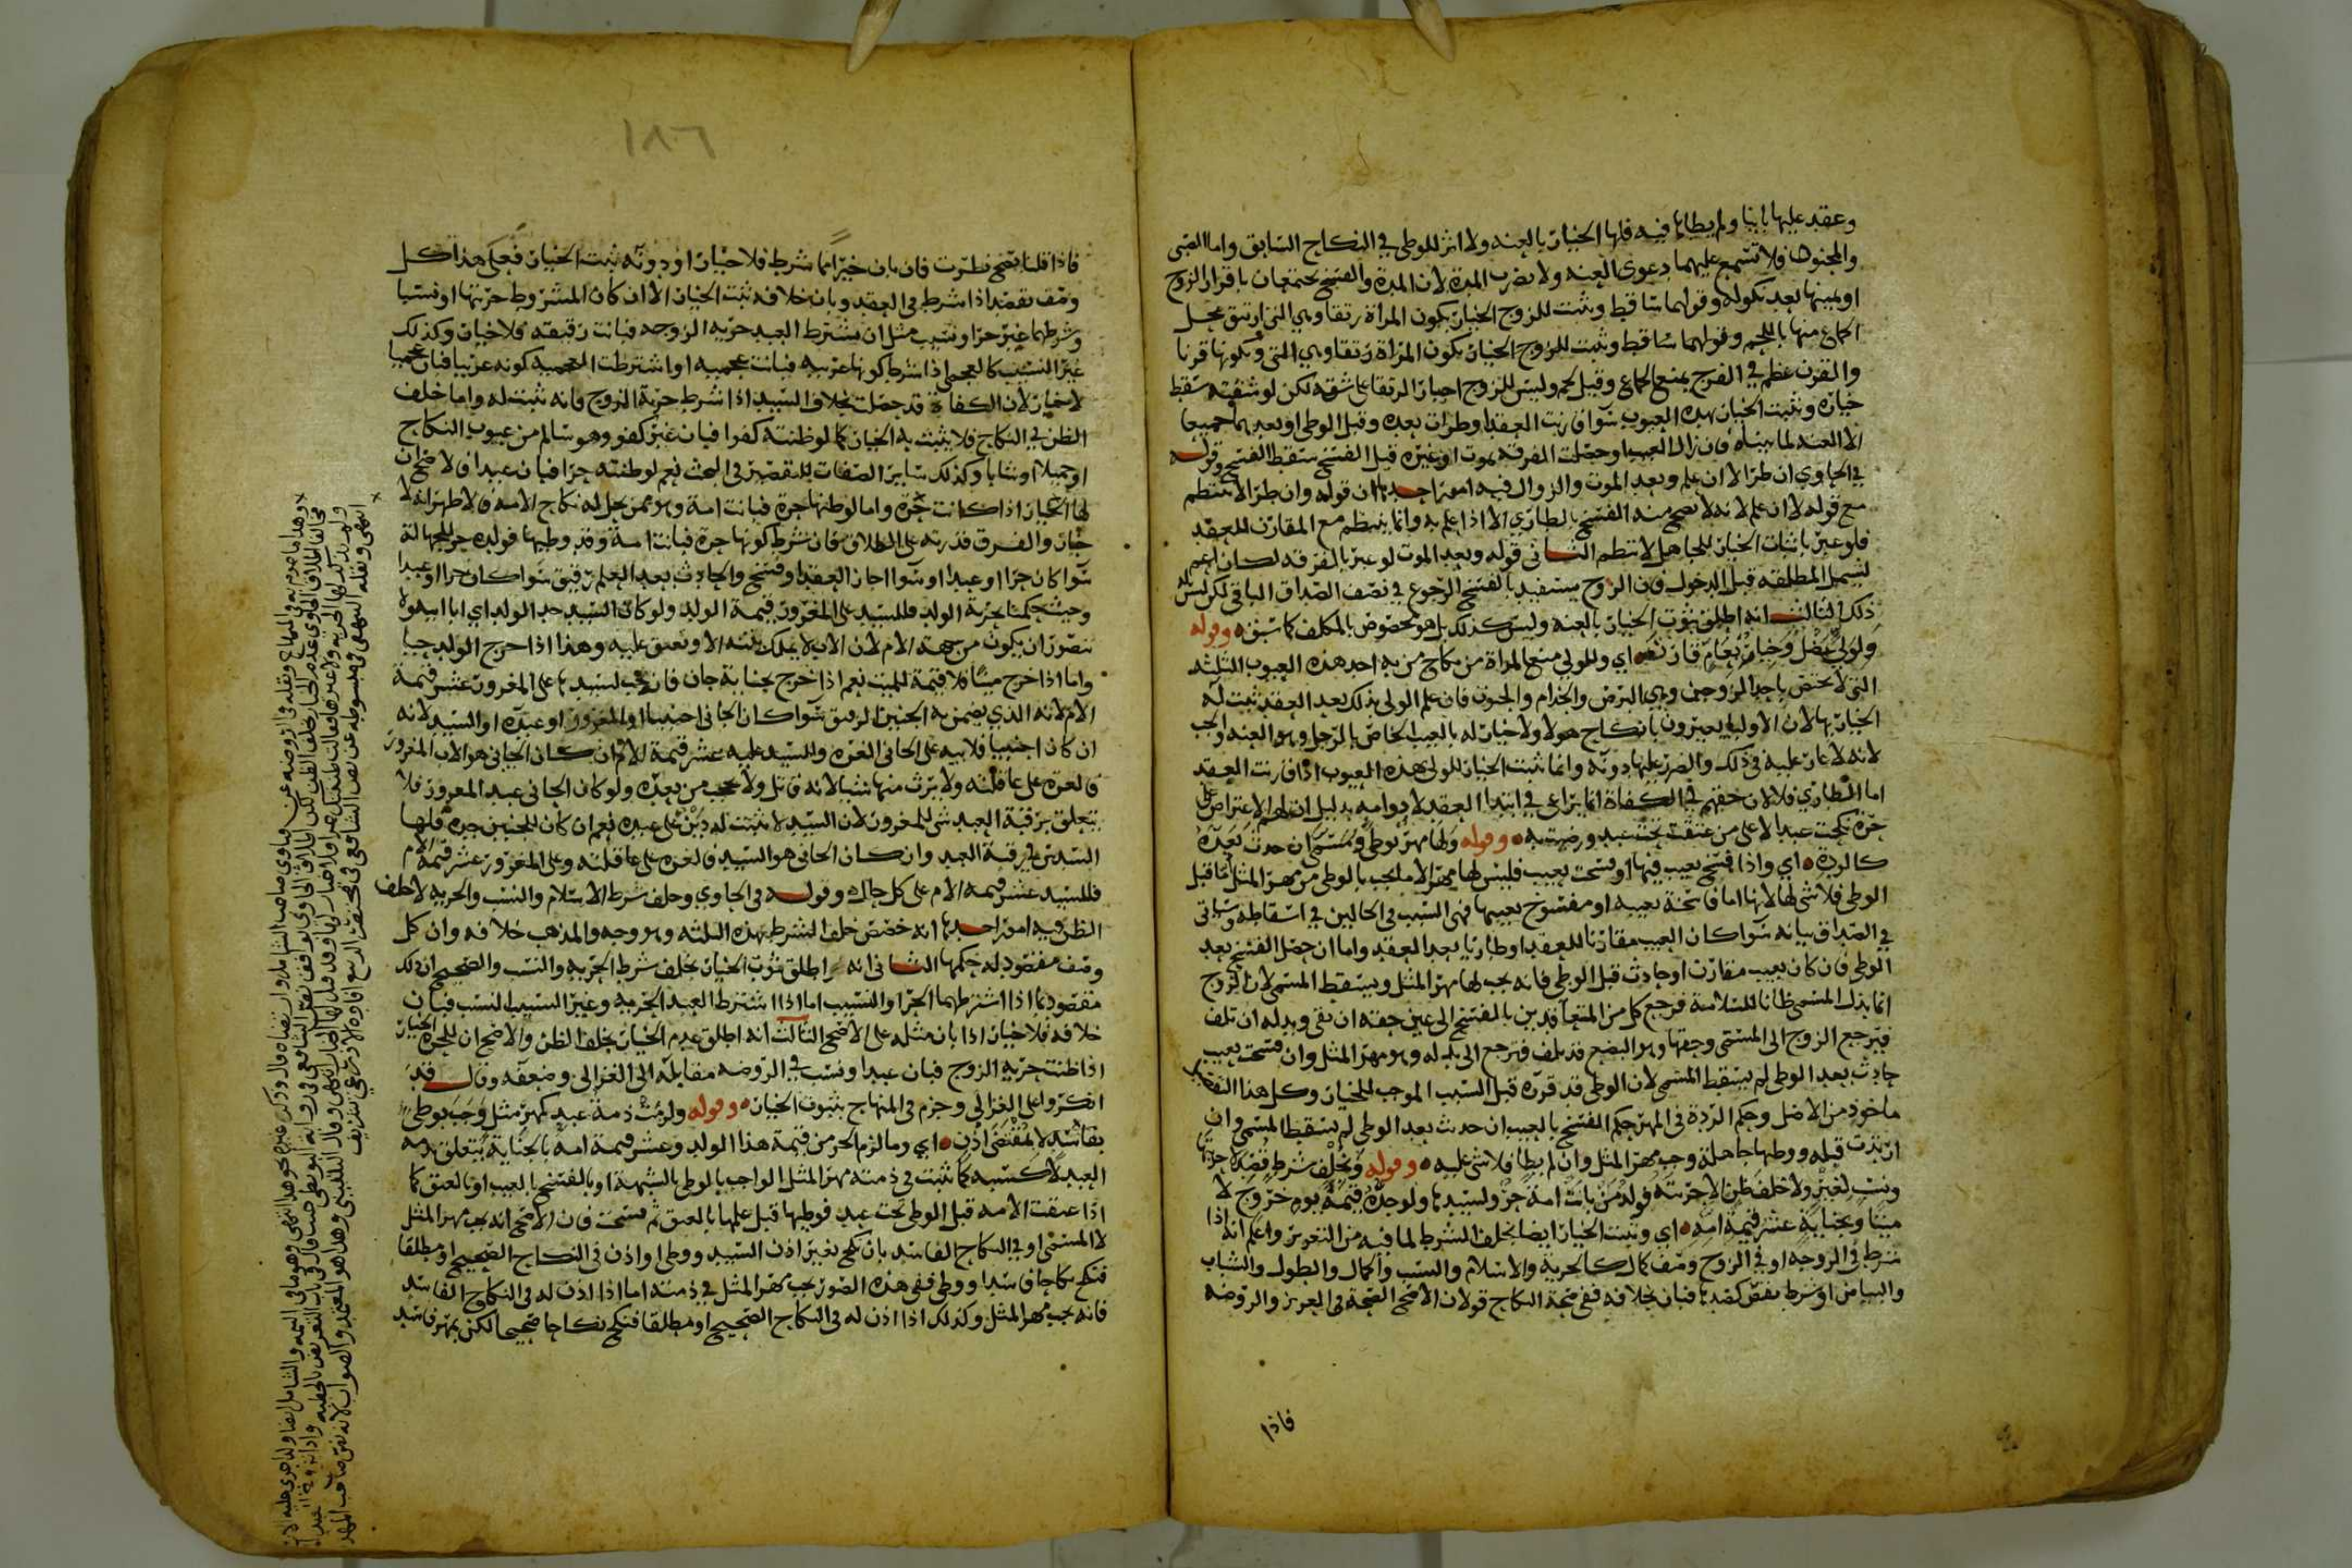 وعقد عليها ثانيا ولم يطاها فيه فلها الخيار بالعنه ولا اثر للوطي في النكاح السابق واما الصبى
والمجنون فلا تسمع عليهما دعوى العنه ولا يضرب المدة لان المدة والفسخ يعتمدان باقرار الزوج
اويمينها بعد نكوله وقولهما ساقط ويثبت للزوج الخيار بكون المراة رتقا وهي التى ارتتق محل
الجماع منها باللحم وقولهما ساقط ويثبت للزوج الخيار بكون المراة رتقا وهي التى وبكونها قرنا
والقرن عظم في الفرج يمنع الجماع وقيل لحم وليس للزوج اجبار الرتقا على شقه لكن لو شقته سقط
خياره ويثبت الخيار بهذه العيوب سوا قارنت العقد او طرات بعده وقبل الوطي او بعدهما جميعا
الا العنه لما بيناه فان زال العيب او حصلت الفرقه بموت او غيره قبل الفسخ سقط الفسخ وقوله
في الحاوي ان طرا لا ان علم وبعد الموت والزوال فيه امور احدها ان قوله وان طرا لا ينتظم
مع قوله لا ان علم لانه لا يصح منه الفسخ بالطاري الا اذا علم به وانما ينتظم مع المقارن للعقد
فلو عبر باثبات الخيار للجاهل لانتظم الثانى قوله وبعد الموت لو عبر بالفرقه لكان اعم
ليشمل المطلقه قبل الدخول فان الزوج يستفيد بالفسخ الرجوع في نصف الصداق الباقى لكن ليس له
ذلك الثالث انه اطلق ثبوت الخيار بالعنه وليس كذلك بل هو مخصوص بالمكلف كما سبق وقوله
ولولي عضل وخيار بعام قارن نعم اي وللولي منع المراة من نكاح من به احد هذه العيوب الثلثه
التى لا تختص باحد الزوجين وهي البرص والجذام والجنون فان علم الولي بذلك بعد العقد ثبت له
الخيار بها لان الاوليا يعيرون بانكاح هولا ولا خيار له بالعيب الخاص بالرجل وهو العنه والجب
لانه لا عار عليه فى ذلك والضرر عليها دونه وانما ثبت الخيار للولي بهذه العيوب اذا قارنت العقد
اما الطاري فلا لان حقهم في الكفاة انما يراعى في ابتدا العقد لا دوامه بدليل ان لهم الاعتراض على
حرة نكحت عبدا لا على من عتقت تحت عبد ورضيت به وقوله ولها مهر بوطي ومسمى ان حدث بعده
كالردة اي واذا فسخ بعيب فيها او فسخت بعيب فليس لها مهر الا ما يجب بالوطى من مهر المثل اما قبل
الوطى فلا شى لها لانها اما فاسخة بعيبه او مفسوخ بعيبها فهى السبب فى الحالين في اسقاطه وسياتى
في الصداق بيانه سوا كان العيب مقارنا للعقد او طاريا بعد العقد واما ان حصل الفسخ بعد
الوطي فان كان بعيب مقارن او حادث قبل الوطي فانه يجب لها مهر المثل ويسقط المسمى لان الزوج
انما بذل المسمى ظانا للسلامة فرجع كل من المتعاقدين بالفسخ الى عين حقه ان بقى وبدله ان تلف
فيرجع الزوج الى المسمى وحقها وهو البضع قد تلف فترجع الى بدله وهو مهر المثل وان فسخت بعيب
حادث بعد الوطى لم يسقط المسمى لان الوطى قد قرره قبل السبب الموجب للخيار وكل هذا التفصيل
ماخوذ من الاصل وحكم الردة في المهر حكم الفسخ بالعيب ان حدث بعد الوطى لم يسقط المسمى وان
ارتدت قبله ووطيها جاهلة وجب مهر المثل وان لم يطا فلا شى عليه وقوله وبخلف شرط قصد لا حريتها
ونسب لغير ولا خلف ظن الا حريته فولد من بانت امة حر ولسيدها ولو جده قيمته يوم خروج لا
ميتا وبجناية عشر قيمة امه اي ويثبت الخيار ايضا بخلف الشرط لما فيه من التغرير واعلم انه اذا
شرط في الزوجه او في الزوج وصف كمال كالحرية والاسلام والنسب والجمال والطول والشباب
والبياض او شرط نقص كضدها فبان بخلافه ففى صحة النكاح قولان الاصح الصحة فى العزيز والروضه
فاذا
١٨٦
فاذا قلنا يصح نظرت فان بان خيرا مما شرط فلا خيار او دونه ثبت الخيار فعلى هذا كل
وصف يقصد اذا شرط في العقد وبان خلافه ثبت الخيار الا ان كان المشروط حريتها او نسبا
وشرطهما غير حر او نسيب مثل ان يشترط العبد حريه الزوجه فبانت رقيقه فلا خيار وكذلك
غير النسيب كالعجمى اذا شرط كونها عربيه فبانت عجميه او اشترطت العجميه كونه عربيا فبان عجميا
لا خيار لان الكفاة قد حصلت بخلاف السيد اذا شرط حرية الزوج فانه ثبت له واما خلف
الظن في النكاح فلا يثبت به الخيار كما لو ظنته كفوا فبان غير كفو وهو سالم من عيوب النكاح
او جميلا او شابا وكذلك ساير الصفات للتقصير في البحث نعم لو ظنته حرا فبان عبدا فالاصح ان
لها الخيار اذا كانت حرة واما لو ظنها حرة فبانت امة وهو ممن يحل له نكاح الامه فالاظهر انه لا
خيار والفرق قدرته على الطلاق فان شرط كونها حرة فبانت امة وقد وطيها فولده حر للجهالة
سوا كان حرا او عبدا وسوا اجاز العقد او فسخ والحادث بعد العلم رقيق سوا كان حرا او عبدا
وحيث حكمنا بحرية الولد فللسيد على المغرور قيمة الولد ولو كان السيد جد الولد اي ابا ابيه ولا
يتصور ان يكون من جهة الام لان الاب لا يملك بنته الا وتعتق عليه وهذا اذا خرج الولد حيا
واما اذا خرج ميتا فلا قيمة للميت نعم اذا خرج بجناية جان فانه يجب لسيدها على المغرور عشر قيمة
الام لانه الذي يضمن به الجنين الرقيق سوا كان الجانى اجنبيا او المغرور او عبده او السيد لانه
ان كان اجنبيا فلابيه على الجانى الغره وللسيد عليه عشر قيمة الام وان كان الجانى هو الاب المغرور
فالغره على عاقلته ولا يرث منها شيا لانه قاتل ولا يحجب من بعده ولو كان الجانى عبد المغرور فلا
يتعلق برقبة العبد شى للمغرور لان السيد لا يثبت له دين على عبده نعم ان كان للجنين جدة فلها
السدس في رقبة العبد وان كان الجانى هو السيد فالغره على عاقلته وعلى المغرور عشر قيمة الام
فللسيد عشر قيمه الام على كل حال وقوله فى الحاوي وخلف شرط الاسلام والنسب والحريه لا خلف
الظن فيه امور احدها انه خصص خلف الشرط بهذه الثلثه وهو وجه والمذهب خلافه وان كل
وصف مقصود له حكمها الثانى انه اطلق ثبوت الخيار بخلف شرط الحريه والنسب والصحيح ان ذلك
مقصود بما اذا اشترطهما الحر او النسيب اما اذا اشترط العبد الحريه وغير النسيب النسب فبان
خلافه فلا خيار اذا بان مثله على الاصح الثالث انه اطلق عدم الخيار بخلف الظن والاصح ان للحرة الخيار
اذا ظنت حرية الزوج فبان عبدا ونسب في الروضه مقابله الى الغزالى وضعفه وقال قد
انكروا على الغزالى وجزم فى المنهاج بثبوت الخيار وقوله ولزمت ذمة عبد كمهر مثل وجب بوطي
بفاسد لا بمقتضى اذن اي وما لزم الحر من قيمة هذا الولد وعشر قيمة امه بالجناية يتعلق بذمه
العبد لا كسبه كما يثبت في ذمته مهر المثل الواجب بالوطي بالشبهة او بالفسخ بالعيب او بالعتق كما
اذا عتقت الامه قبل الوطى تحت عبد فوطيها قبل علمها بالعتق ثم فسخت فان الاصح انه يجب مهر المثل
لا المسمى او في النكاح الفاسد بان نكح بغير اذن السيد ووطى او اذن فى النكاح الصحيح او مطلقا
فنكح نكاحا فاسدا ووطى ففى هذه الصور يجب مهر المثل في ذمته اما اذا اذن له فى النكاح الفاسد
فانه يجب مهر المثل وكذلك اذا اذن له فى النكاح الصحيح او مطلقا فنكح نكاحا صحيحا لكن بمهر فاسد